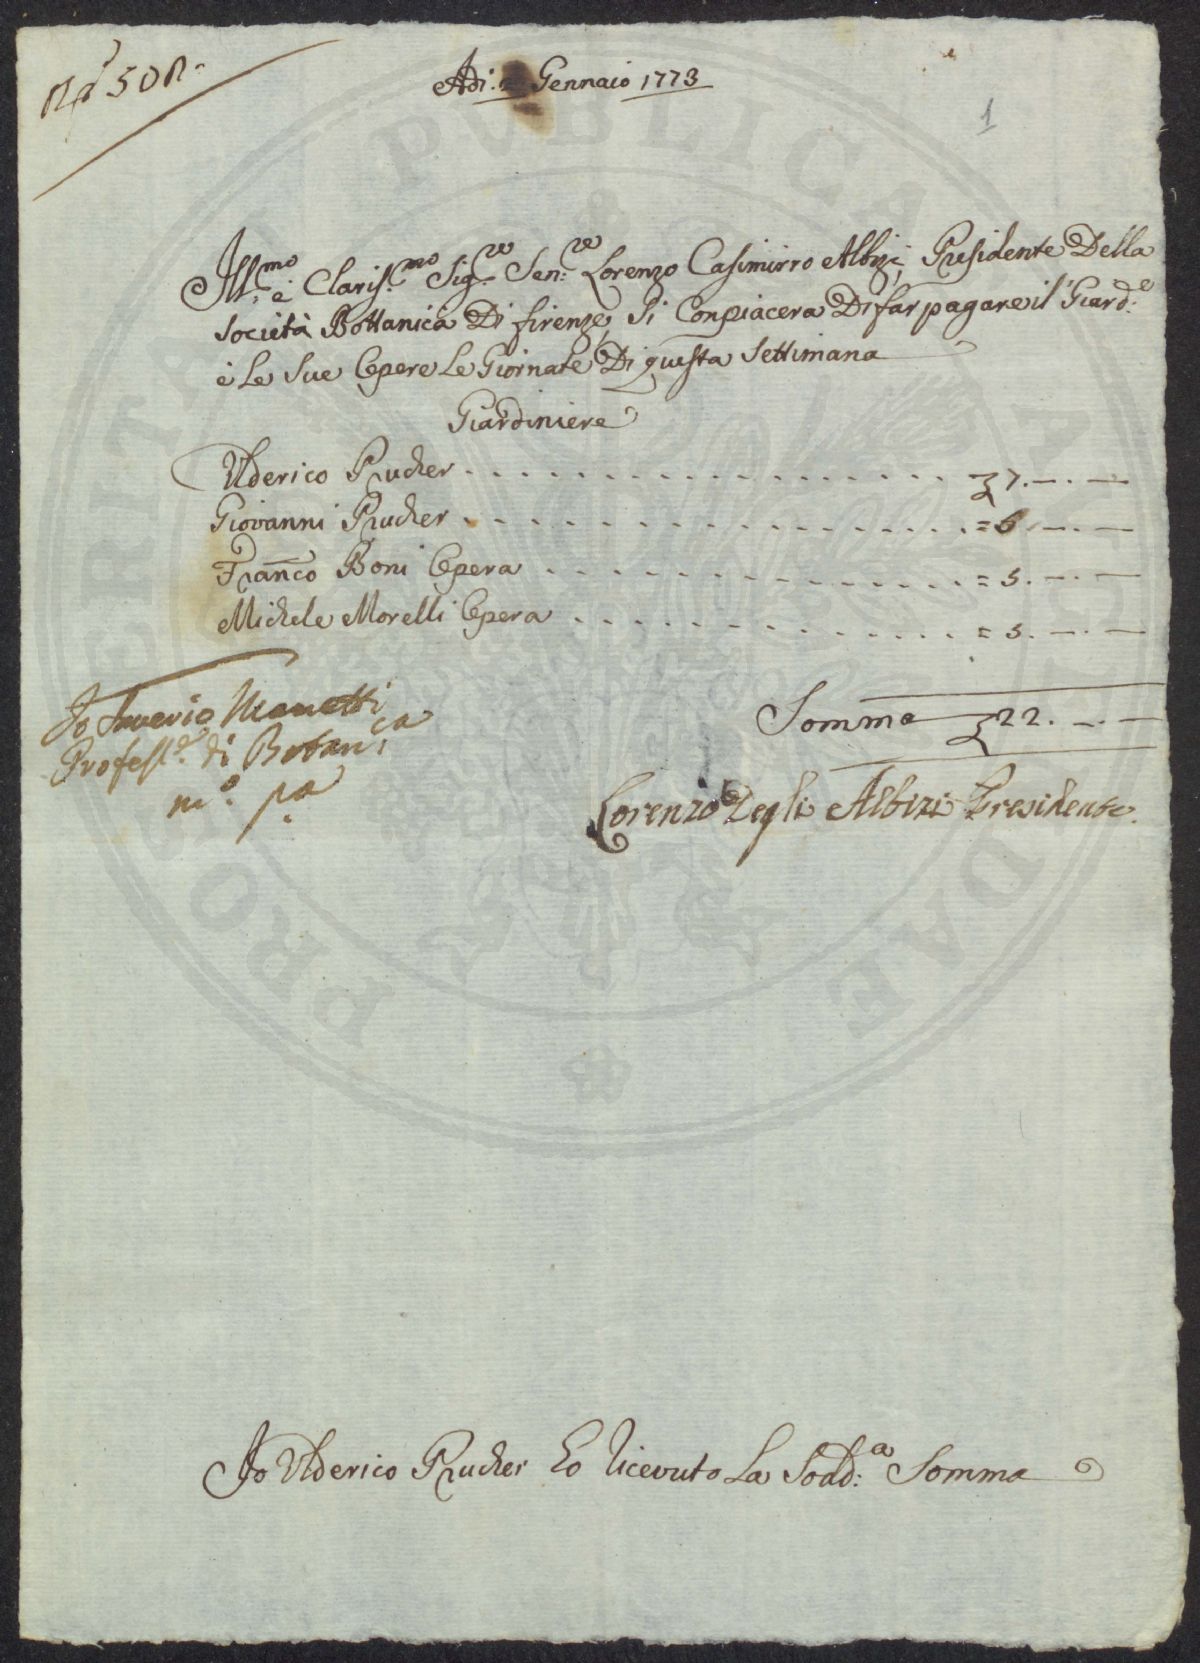 Adi: 2 Gennaio 1773
1
Ill:mo e Clariss:mo Sig:re Sen:re Lorenzo Casimirro Albizi Presidente Della
Società Bottanica Di firenze, Si Conpiacera Di far pagare il Giard:e
è Le Sue Opere Le Giornate Di questa Settimana
Giardiniere
Ulderico Prucker . . . . . . . . . . 7.—.—
Giovanni Prucker . . . . . . . . . . = 5.—.—
Franco Boni Opera . . . . . . . . . . = 5.—.—
Michele Morelli Opera . . . . . . . . . . = 5.—.—
Somma 22.—.—
Io Saverio Manetti
Profess:e di Botanica
m:o pa
Lorenzo Degli Albizi Presidente.
Io Ulderico Prucker Eo Ricevuto La Sodd:a Somma
PRO PUBLICA